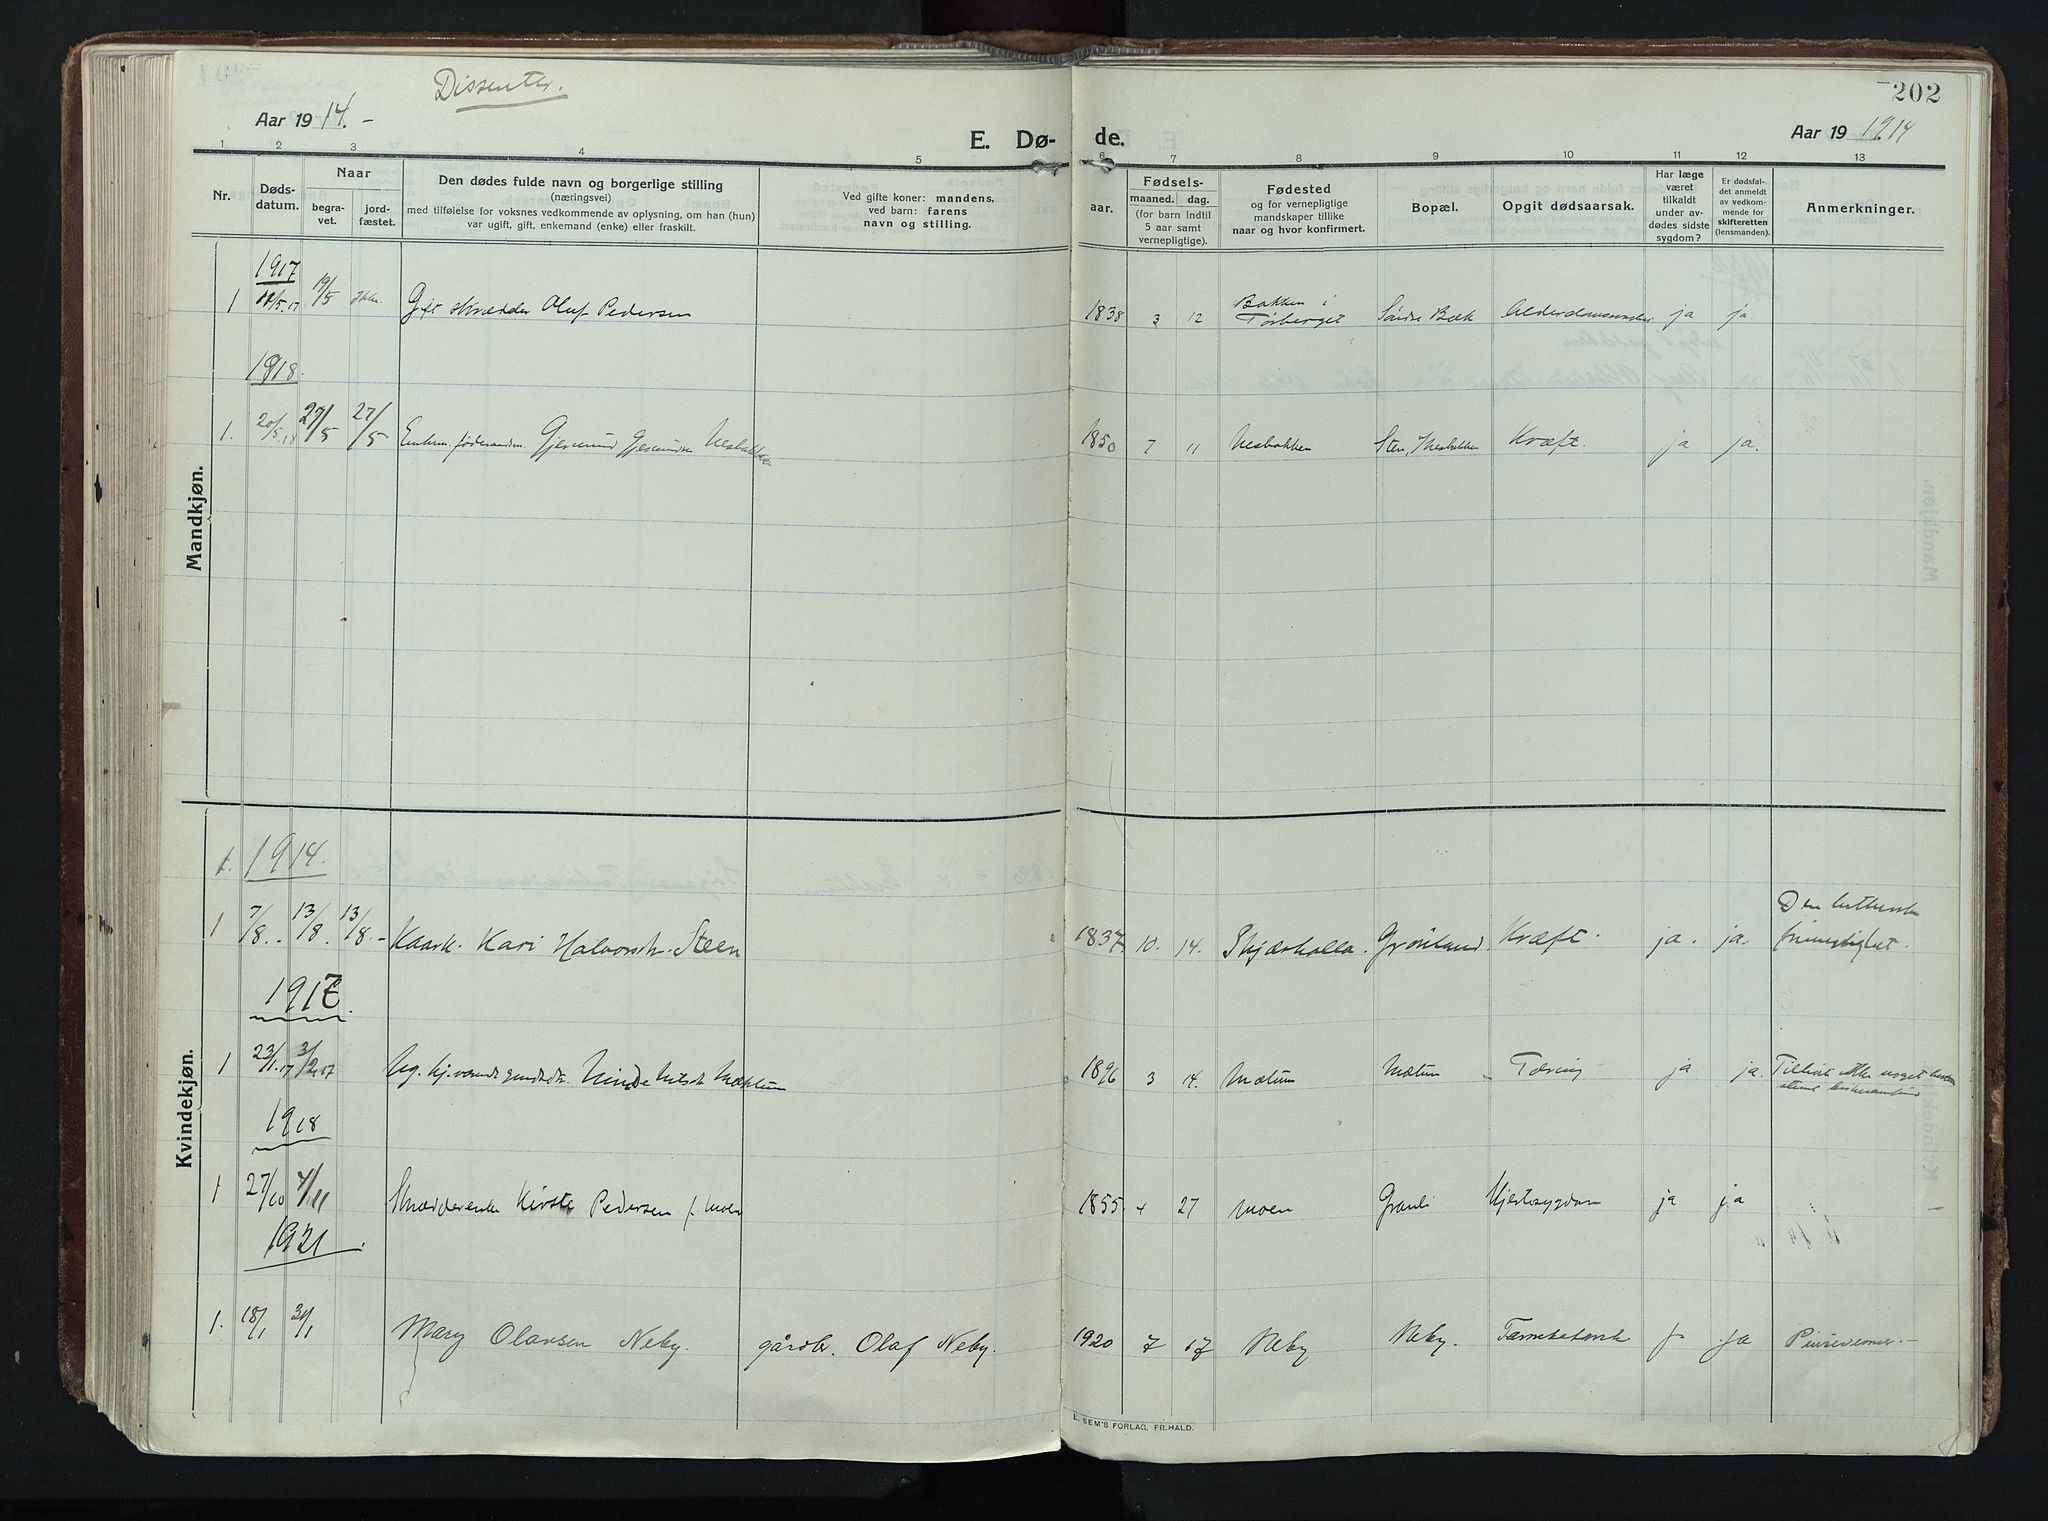 Dissenter.
202
Aar 1914.-
E. Dø-
de.
Aar 19 1914
1 2 3 4 5 6 7 8 9 10 11 12 13
Nr.
Døds-
datum.
Naar
begra-
vet.
jord-
fæstet.
Den dødes fulde navn og borgerlige stilling
(næringsvei)
med tilføielse for voksnes vedkommende av oplysning, om han (hun)
var ugift, gift, enkemand (enke) eller fraskilt.
Ved gifte koner: mandens,
ved barn: farens
navn og stilling.
Fødsels-
aar.
maaned.
dag.
(for barn indtil
5 aar samt
vernepligtige).
Fødested
og for vernepligtige
mandskaper tillike
naar og hvor konfirmert.
Bopæl.
Opgit dødsaarsak.
Har læge
været
tilkaldt
under av-
dødes sidste
sygdom?
Er dødsfal-
det anmeldt
av vedkom-
mende for
skifteretten
(lensmanden).
Anmerkninger.
Mandkjøn.
1917
1 /5.17 19/5 Gift skrædder Oluf Pedersen 1838 3 12 Bakken i
Tørberget Søndre Bæk ja ja.
1918.
1. 20/5.18 27/5 27/5 Gjermund Nesbakken 1850 7 11 Nesbakken Kræft. ja ja.
Kvindekjøn.
1. 1914.
1 7/8.- 13/8. 13/8.- Kaark. Kari Halvorsdr. Steen 1837. 10. 14. Grønland. Kræft. ja. ja. Den lutherske
frimenighet.
1917
1 23/1.17 3/2.17 Ug. 1896 3 14. Mælum Mælum Tæring ja ja.
1918
1 27/10 4/11 Skrædderenke Kirste Pedersen f. Moen 1855. 4 27 Moen Hjertesygdom ja ja
1921
1. 18/1 30/1 Mary Olavsen Neby. gårdbr. Olaf Neby. 1920 7 17 Neby Neby. j. ja Pinsevenner.-
E. SEM'S FORLAG, FR.HALD.